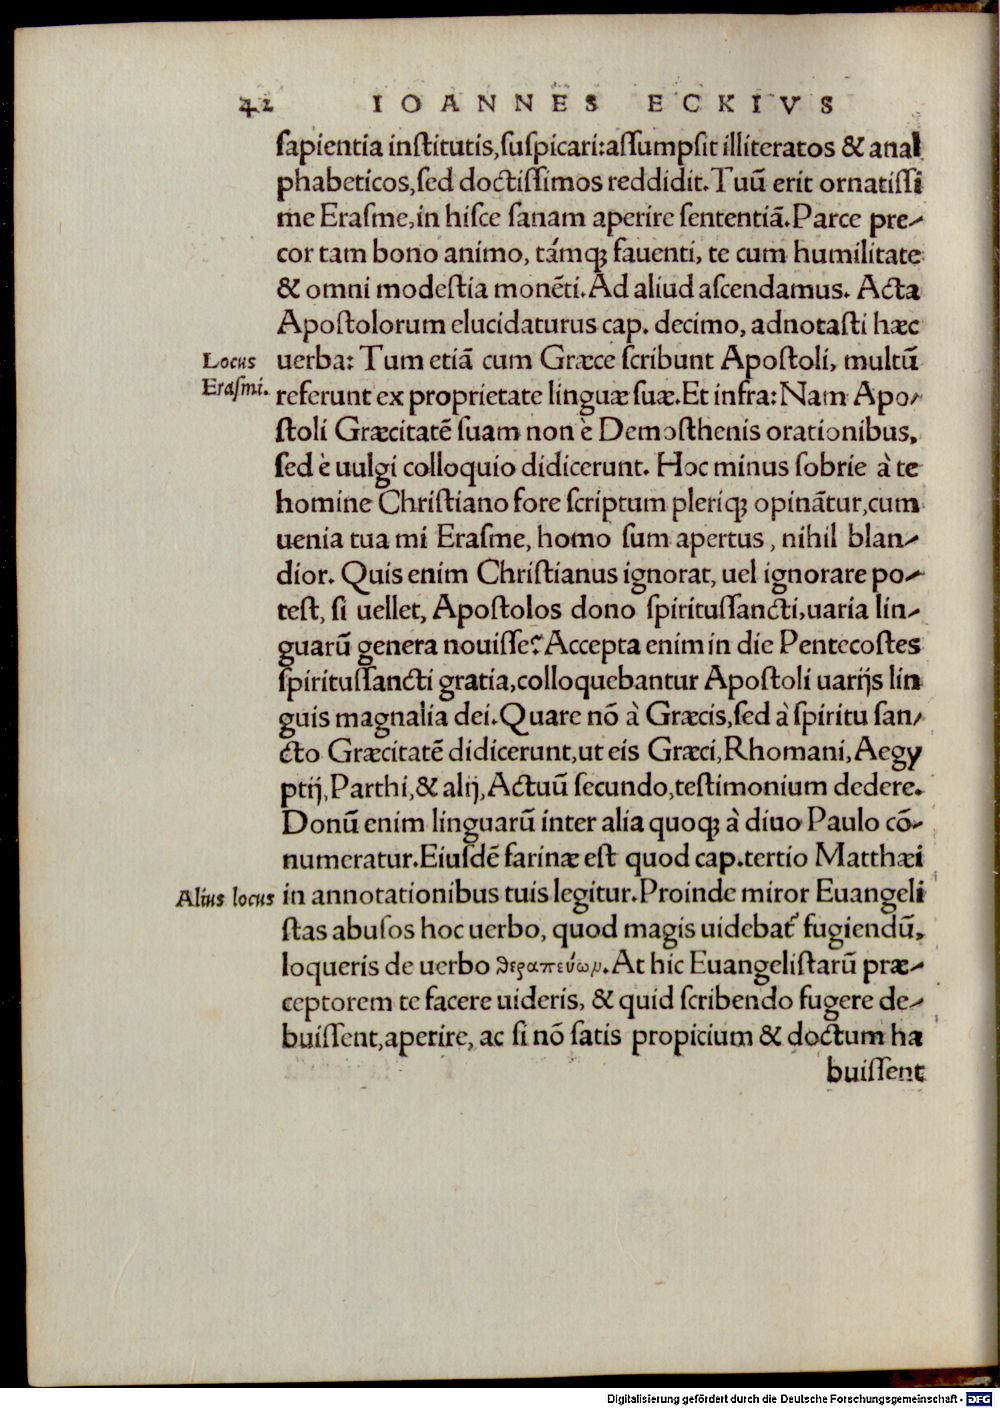 42 IOANNES ECKIVS
sapientia institutis,suspicari:assumpsit illiteratos & anal
phabeticos,sed doctissimos reddidit.Tuū erit ornatissi
me Erasme,in hisce sanam aperire sententiā.Parce pre-
cor tam bono animo, támq; fauenti, te cum humilitate
& omni modestia monēti.Ad aliud ascendamus. Acta
Apostolorum elucidaturus cap. decimo, adnotasti hæc
Locus
Erasmi.
uerba: Tum etiā cum Græce scribunt Apostoli, multū
referunt ex proprietate linguæ suæ.Et infra:Nam Apo-
stoli Græcitatē suam non è Demosthenis orationibus,
sed è uulgi colloquio didicerunt. Hoc minus sobrie à te
homine Christiano fore scriptum pleriq; opinātur,cum
uenia tua mi Erasme, homo sum apertus, nihil blan-
dior. Quis enim Christianus ignorat, uel ignorare po-
test, si uellet, Apostolos dono spiritussancti,uaria lin-
guarū genera nouisse? Accepta enim in die Pentecostes
spiritussancti gratia,colloquebantur Apostoli uarijs lin
guis magnalia dei.Quare nō à Græcis,sed à spiritu san-
cto Græcitatē didicerunt,ut eis Græci,Rhomani,Aegy
ptij,Parthi,& alij,Actuū secundo,testimonium dedere.
Donū enim linguarū inter alia quoq; à diuo Paulo cō-
numeratur.Eiusdē farinæ est quod cap.tertio Matthæi
Alius locus
in annotationibus tuis legitur.Proinde miror Euangeli
stas abusos hoc uerbo, quod magis uidebat' fugiendū,
loqueris de uerbo θεραπεύωμ.At hic Euangelistarū præ-
ceptorem te facere uideris, & quid scribendo fugere de-
buissent,aperire, ac si nō satis propicium & doctum ha
buissent
Digitalisierung gefördert durch die Deutsche Forschungsgemeinschaft - DFG